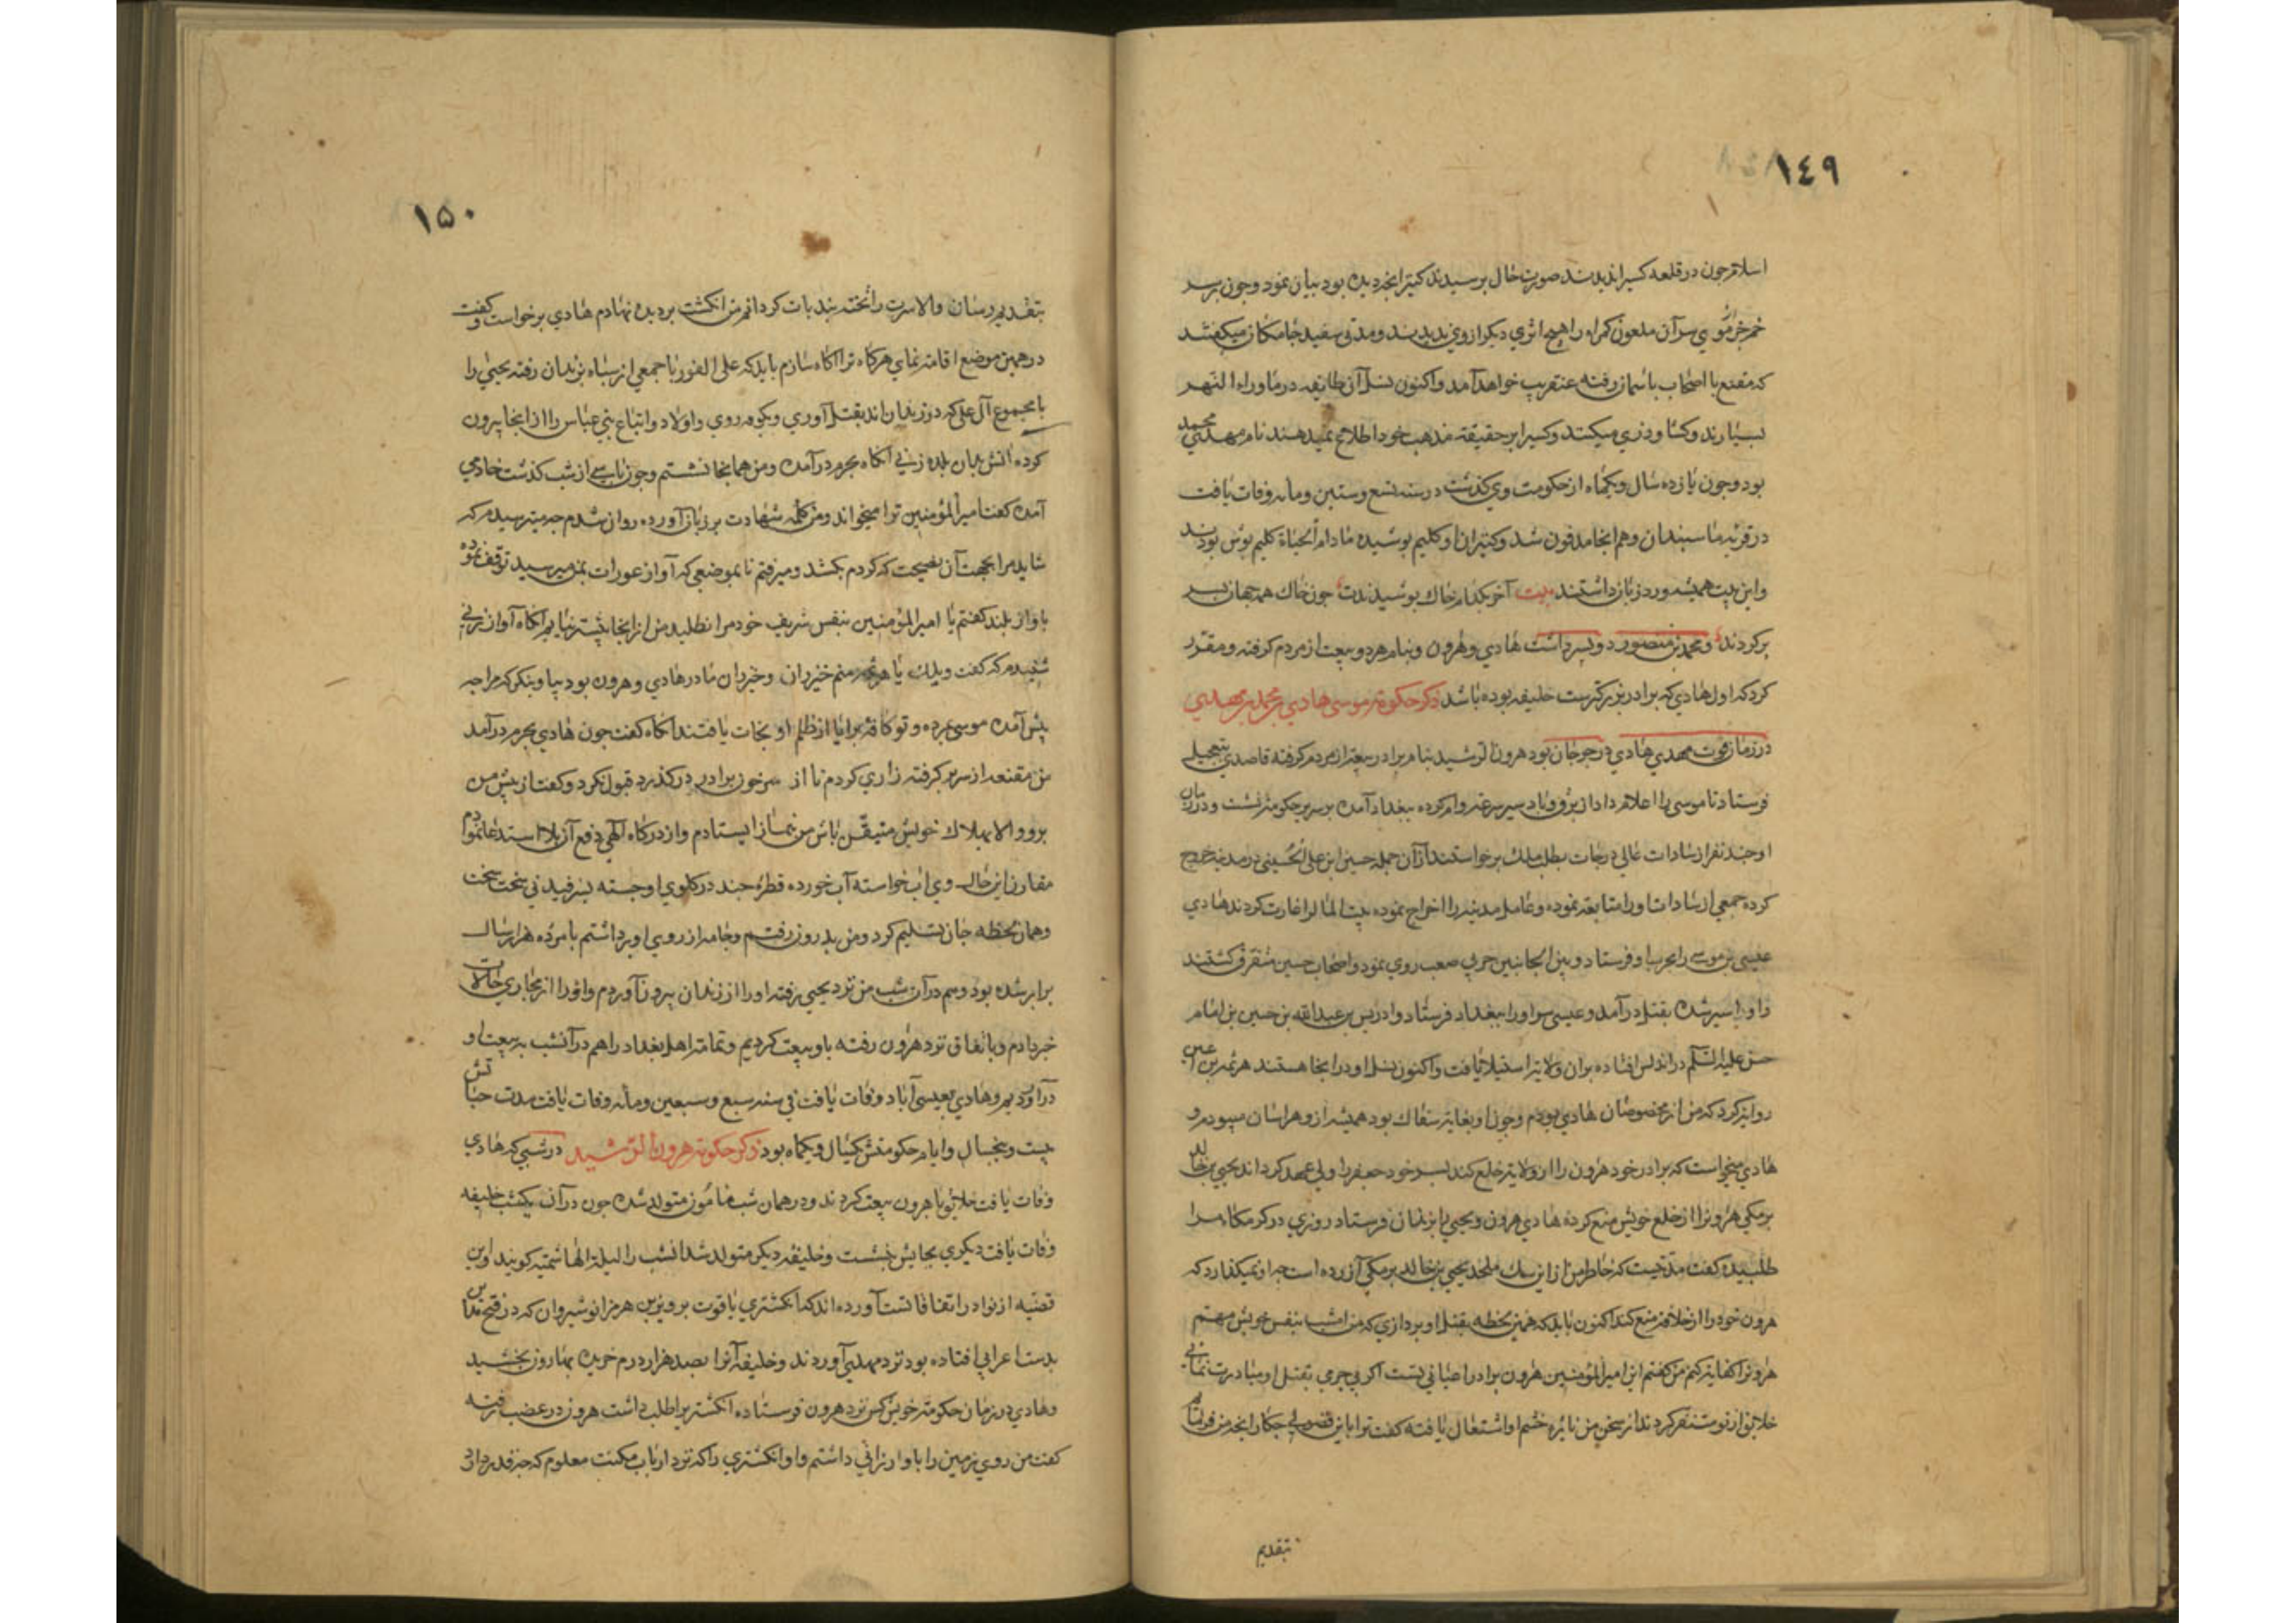 ١٤٩
اسلام جون در قلعه کسیرا ندیدند صورت حال برسیدند کنیز انجه دیده بود بیان نمود و جون بر سر
خم جز موی سر آن ملعون کمراه را هیج اثری دیکر از وی ندیدند و مدتی سفید جامکان میکفتند
که مقنع با اصحاب باسمان رفته عنقریب خواهد آمد و اکنون نسل آن طایفه در ماوراء النهر
بسیارند و کشاورزی میکنند و کسیرا بر حقیقة مذهب خود اطلاع نمیدهند نام مهدی محمد
بود و جون یازده سال و یکماه از حکومت وی کذشت در سنه تسع و ستین و مأیه وفات یافت
در قریه ماسبندان و هم انجا مدفون شد و کنیزان او کلیم بوشیده مادام الحیاة کلیم بوش بودند
و این بیت همیشه ورد زبان داشتند بیت آخر بکدام خاک بوشیدندت جون خاک همه جهان بسر
بر کردند و محمد بن منصور دو بسر داشت هادی و هرون و بنام هر دو بیعت از مردم کرفته و مقرر
کرد که اول هادی که برادر بزرکترست خلیفه بوده باشد ذکر حکومة موسی هادی بن محمد بن مهدی
در زمان فوت مهدی هادی در جرجان بود هرون الرشید بنام برادر بیعة از مردم کرفته قاصدی بتعجیل
فرستاد تا موسی را اعلام داد از برق و باد سیر سرعة وام کرده ببغداد آمده بر سریر حکومة نشست و در زمان
او جند نفر از سادات عالی درجات بطلب ملک برخواستند از آن جمله حسین ابن علی الحسینی در مدینه خروج
کرده جمعی از سادات او را متابعة نموده و عامل مدینه را اخراج نموده بیت المال را غارت کردند هادی
عیسی بن موسی را بحرب او فرستاد و بین الجانبین حربی صعب روی نمود و اصحاب حسین متفرق کشتند
و او اسیر شده بقتل در آمد و عیسی سر او را ببغداد فرستاد و ادریس بن عبدالله بن حسین بن امام
حسن علیه السلام در اندلس افتاده بر آن ولایة استیلا یافت و اکنون نسل او در انجا هستند هرثمه بن اعین
روایة کرد که من از مخصوصان هادی بودم و جون او بغایة سفاک بود همیشه ازو هراسان میبودم و
هادی میخواست که برادر خود هرون را از ولایة خلع کند بسر خود جعفر را ولی عهد کرداند یحیی بن خالد
برمکی هرون را از خلع خویش منع کرده هادی هرون و یحیی را بزندان فرستاد روزی در کرمکاه مرا
طلبیده کفت مدتیست که خاطر من از این سک ملحد یحیی بن خالد برمکی آزرده است جه او نمیکذارد که
هرون خود را از خلافة منع کند اکنون باید که همین لحظه بقتل او بردازی که من امشب بنفس خویش مهم
هرون را کفایة کنم من کفتم ای امیر المؤمنین هرون برادر اعیانی تست اکر بی جرمی بقتل او مبادرت نمائی
خلایق از تو متنفر کردند از سخن من نایره خشم او اشتعال یافته کفت ترا با این فضولی جکار انجه من فرمایم
بتقدیم
١٥٠
بتقدیم رسان والا سرت را تخته بند بات کردانم من انکشت بر دیده نهادم هادی برخواست و کفت
در همین موضع اقامة نمای هرکاه ترا آکاه سازم باید که علی الفور با جمعی از سباه بزندان رفته یحیی را
با مجموع آل علی که در زندان اند بقتل آوری و بکوفه روی و اولاد و اتباع بنی عباس را از انجا بیرون
کرده آتش بدان بلده زنی آنکاه بحرم در آمده و من همانجا نشستم و جون باسی از شب کذشت خادمی
آمده کفت امیر المؤمنین ترا میخواند و من کلمه شهادت بر زبان آورده روان شدم جه میترسیدم که
شاید مرا بجهت آن نصیحت که کردم بکشد و میرفتم تا بموضعی که آواز عورات بمن میرسید توقف نموده
باواز بلند کفتم یا امیر المؤمنین بنفس شریف خود مرا نطلبید من از انجا بیشتر نیایم آنکاه آواز زنی
شنیدم که کفت ویلک یا هرثمه منم خیزران و خیزران مادر هادی و هرون بود بیا و بنکر که مرا جه
بیش آمده موسی مرده و تو و کافه برایا از ظلم او نجات یافتند آنکاه کفت جون هادی بحرم در آمد
من مقنعه از سر بر کرفته زاری کردم تا از سر خون برادر در کذرد قبول نکرد و کفت از بیش من
برو والا بهلاک خویش متیقن باش من بنماز ایستادم و از درکاه الهی دفع آن بلا استدعا نمودم
مقارن این حال وی آب خواسته آب خورده قطره جند در کلوی او جسته بسرفید نی سخت سخت
و همان لحظه جان تسلیم کرد و من بدرون رفتم و جامه از روی او برداشتم با مرده هزار ساله
برابر شده بود و هم در آن شب من نزد یحیی رفته او را از زندان بیرون آوردم و او را از مجاری حالات
خبر دادم و باتفاق نزد هرون رفته باو بیعت کردیم و تمامة اهل بغداد را هم در آنشب به بیعت او
در آوردیم و هادی بعیسی آباد وفات یافت فی سنه سبع و سبعین و مأیه وفات یافت مدت حیاتش
بیست و بنجسال و ایام حکومتش یکسال و یکماه بود ذکر حکومة هرون الرشید در شبی که هادی
وفات یافت خلایق با هرون بیعت کردند و در همان شب مأمون متولد شده جون در آن یکشب خلیفه
وفات یافت دیکری بجایش بنشست و خلیفه دیکر متولد شد آنشب را لیلة الهاشمیه کویند و این
قضیه از نوادر اتفاقاتست آورده اند که انکشتری یاقوت برویز بن هرمز انوشیروان که در فتح مداین
بدست اعرابی افتاده بود نزد مهدی آوردند و خلیفه آنرا بصد هزار درم خریده بهارون بخشید
و هادی در زمان حکومة خویش کس نزد هرون فرستاده انکشتریرا طلب داشت هرون در غضب رفته
کفت من روی زمین را باو ارزانی داشتم و او انکشتری را که نزد ارباب مکنت معلوم که جه قدر دارد